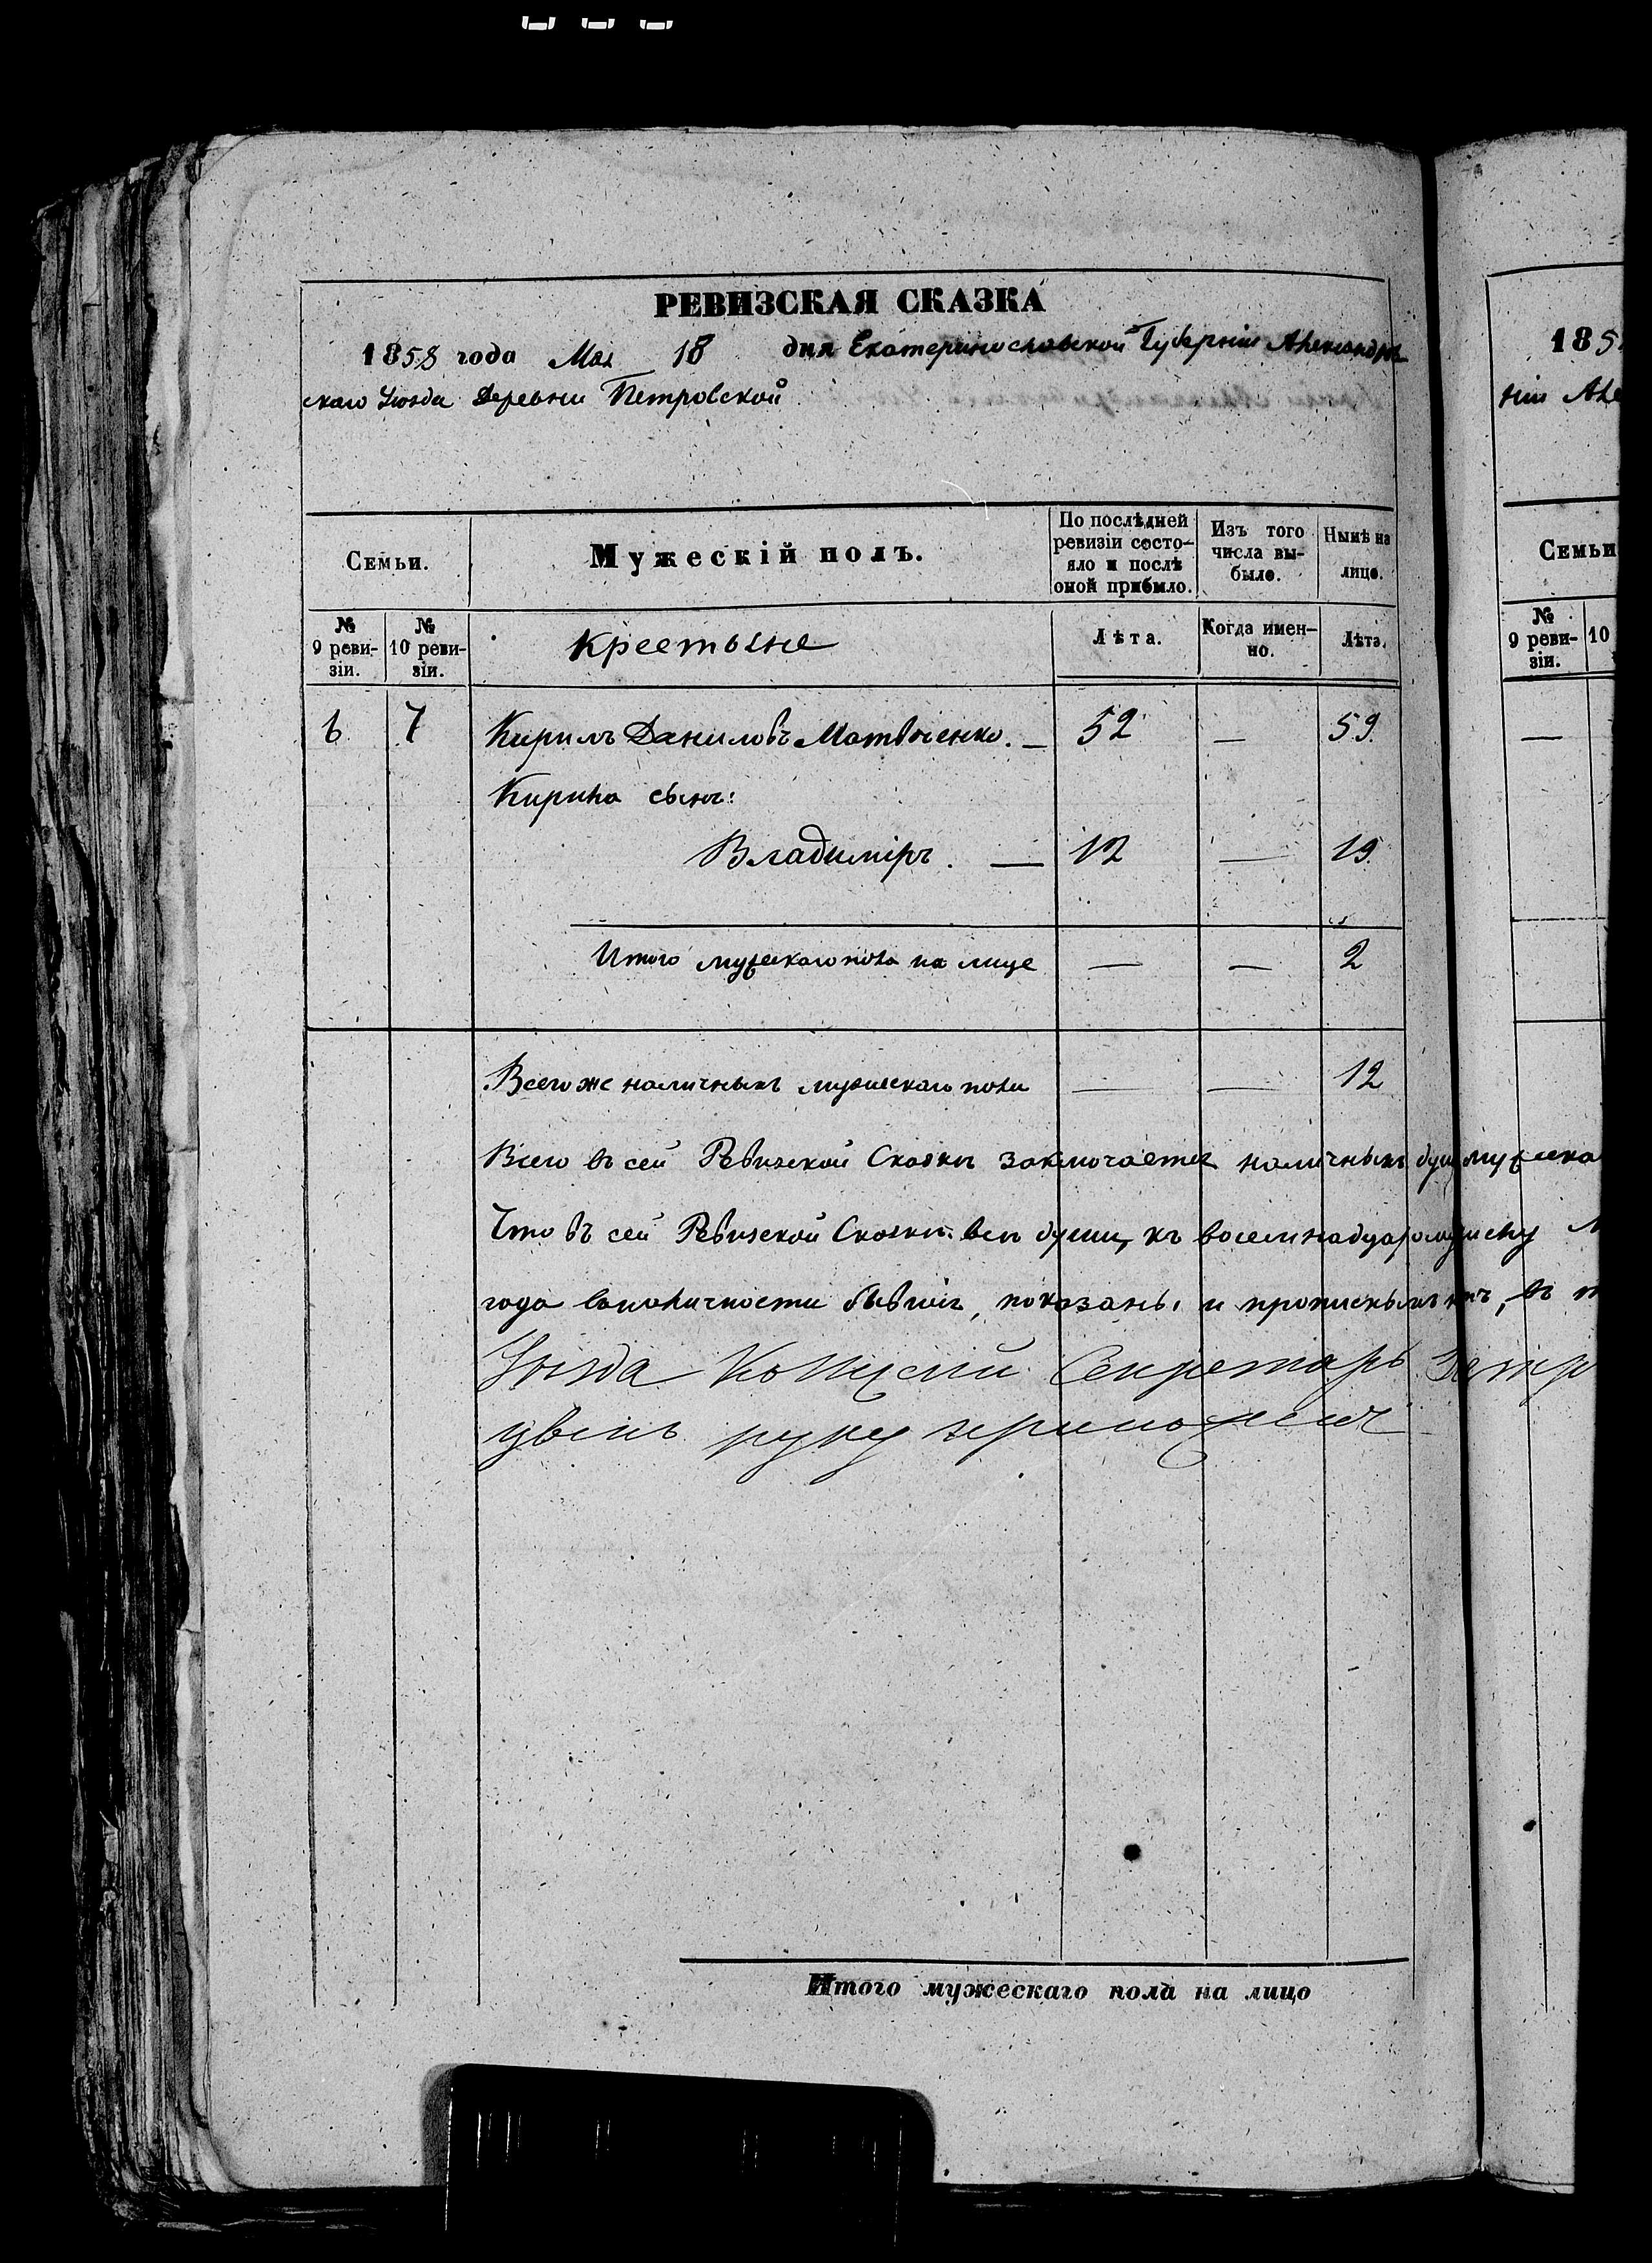 РЕВИЗСКАЯ СКАЗКА
1858 года Мая 18 дня Екатеринославской Губерніи Александров
скаго Уѣзда Деревни Петровской
Семьи.
Мужескій полъ.
По послѣдней
ревизіи состо-
яло и послѣ
оной прибыло.
Изъ того
числа вы-
было.
Нынѣ на
лицо.
№
9 реви-
зіи.
№
10 реви-
зіи.
Крестьяне
Лѣта.
Когда имен-
но.
Лѣта.
6 7 Кирилъ Даниловъ Матвѣенко. — 52 — 59.
Кирила сынъ:
Владиміръ. — 12 — 19.
Итого мужескаго пола на лице — — 2
Всего же наличныхъ мужескаго пола — — 12
Всего въ сей Ревизской Сказкѣ заключается наличныхъ душъ мужеска
Что въ сей Ревизской Сказкѣ всѣ души, къ восемнадцатому числу
года въ наличности бывшія, показаны и прописныхъ нѣтъ, въ
Уѣзда Секретарь
руку приложилъ
Итого мужескаго пола на лицо
185
ніи Але
Семьи
№
9 реви-
зіи.
10
—